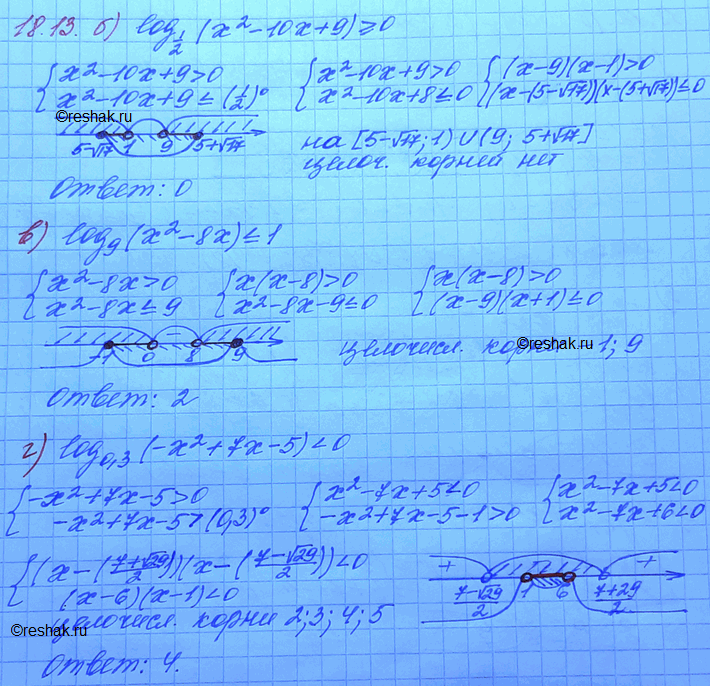 18.13. б) log_{1/2} (x² - 10x + 9) ≥ 0
{ x² - 10x + 9 > 0 { x² - 10x + 9 > 0 { (x-9)(x-1) > 0
{ x² - 10x + 9 ≤ (1/2)⁰ { x² - 10x + 8 ≤ 0 { (x-(5-√17))(x-(5+√17)) ≤ 0
©reshak.ru
5-√17 1 9 5+√17 на [5-√17; 1) ∪ (9; 5+√17]
целоч. корней нет
Ответ: 0
в) log₉ (x² - 8x) ≤ 1
{ x² - 8x > 0 { x(x-8) > 0 { x(x-8) > 0
{ x² - 8x ≤ 9 { x² - 8x - 9 ≤ 0 { (x-9)(x+1) ≤ 0
-
-1 0 8 9 целочисл. корни -1; 9
©reshak.ru
Ответ: 2
г) log_{0,3} (-x² + 7x - 5) < 0
{ -x² + 7x - 5 > 0 { x² - 7x + 5 < 0 { x² - 7x + 5 < 0
{ -x² + 7x - 5 > (0,3)⁰ { -x² + 7x - 5 - 1 > 0 { x² - 7x + 6 < 0
{ (x - ((7+√29)/2))(x - ((7-√29)/2)) < 0
{ (x-6)(x-1) < 0
+ +
(7-√29)/2 1 6 (7+29)/2
целочисл. корни 2; 3; 4; 5
©reshak.ru
Ответ: 4.